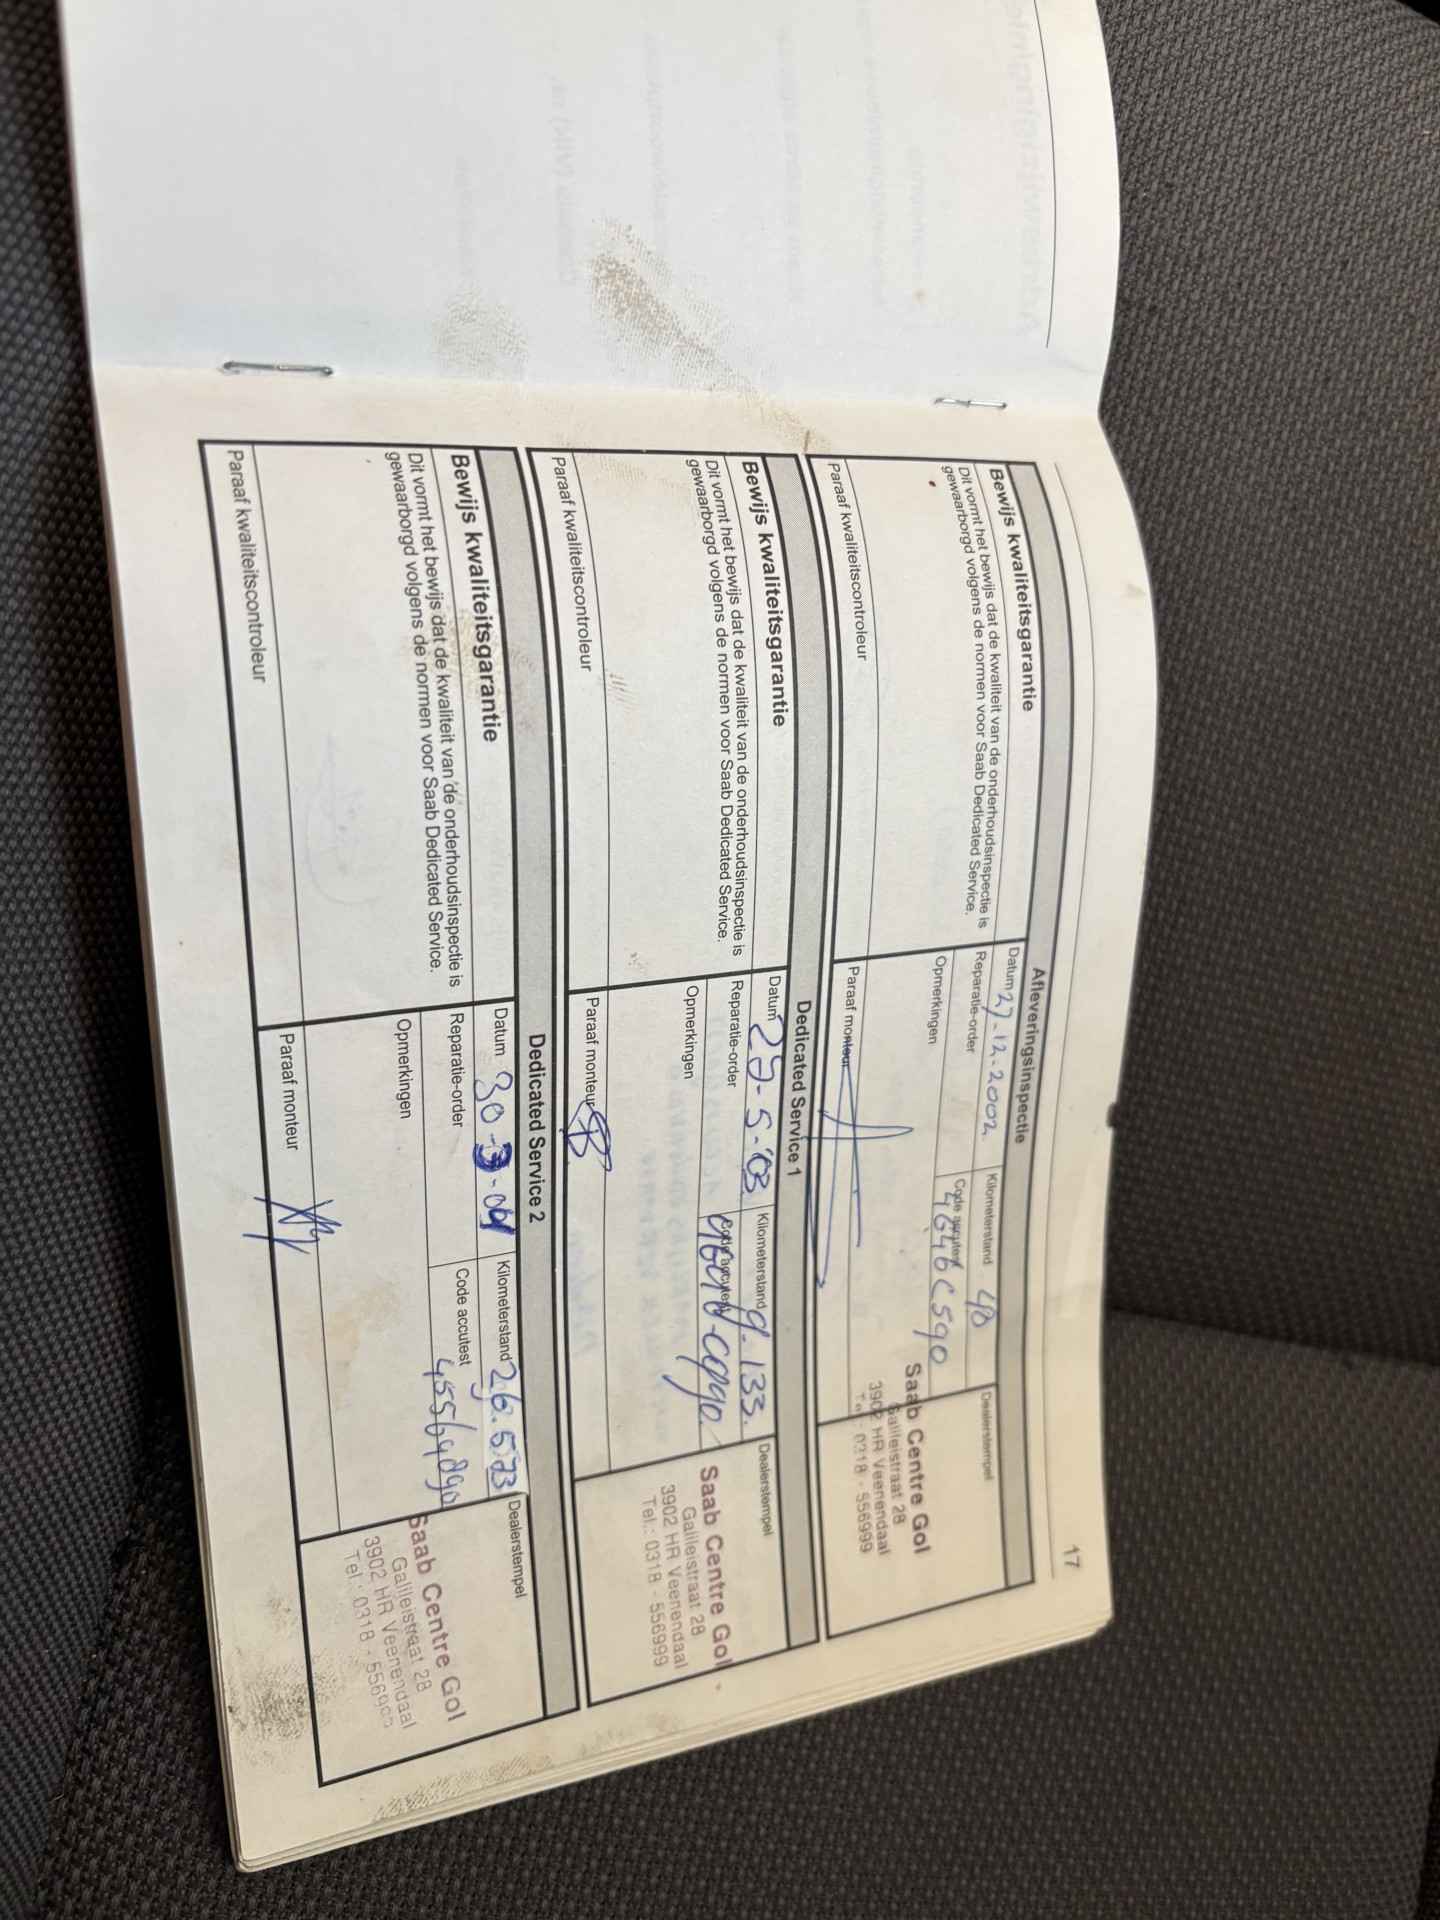 17
Afleveringsinspectie
Bewijs kwaliteitsgarantie
Dit vormt het bewijs dat de kwaliteit van de onderhoudsinspectie is
gewaarborgd volgens de normen voor Saab Dedicated Service.
Paraaf kwaliteitscontroleur
Datum 27-12-2002
Kilometerstand 48
Dealerstempel
Reparatie-order
Code accutest
4646C590
Opmerkingen
Paraaf monteur
Saab Centre Gol
Galileistraat 28
3902 HR Veenendaal
Tel.: 0318 - 556999
Dedicated Service 1
Bewijs kwaliteitsgarantie
Dit vormt het bewijs dat de kwaliteit van de onderhoudsinspectie is
gewaarborgd volgens de normen voor Saab Dedicated Service.
Paraaf kwaliteitscontroleur
Datum 29-5-'03
Kilometerstand 9.133.
Dealerstempel
Reparatie-order
Code accutest
Opmerkingen
Paraaf monteur
Saab Centre Gol
Galileistraat 28
3902 HR Veenendaal
Tel.: 0318 - 556999
Dedicated Service 2
Bewijs kwaliteitsgarantie
Dit vormt het bewijs dat de kwaliteit van de onderhoudsinspectie is
gewaarborgd volgens de normen voor Saab Dedicated Service.
Paraaf kwaliteitscontroleur
Datum 30-3-04
Kilometerstand 26.573
Dealerstempel
Reparatie-order
Code accutest
Opmerkingen
Paraaf monteur
Saab Centre Gol
Galileistraat 28
3902 HR Veenendaal
Tel.: 0318 - 556999